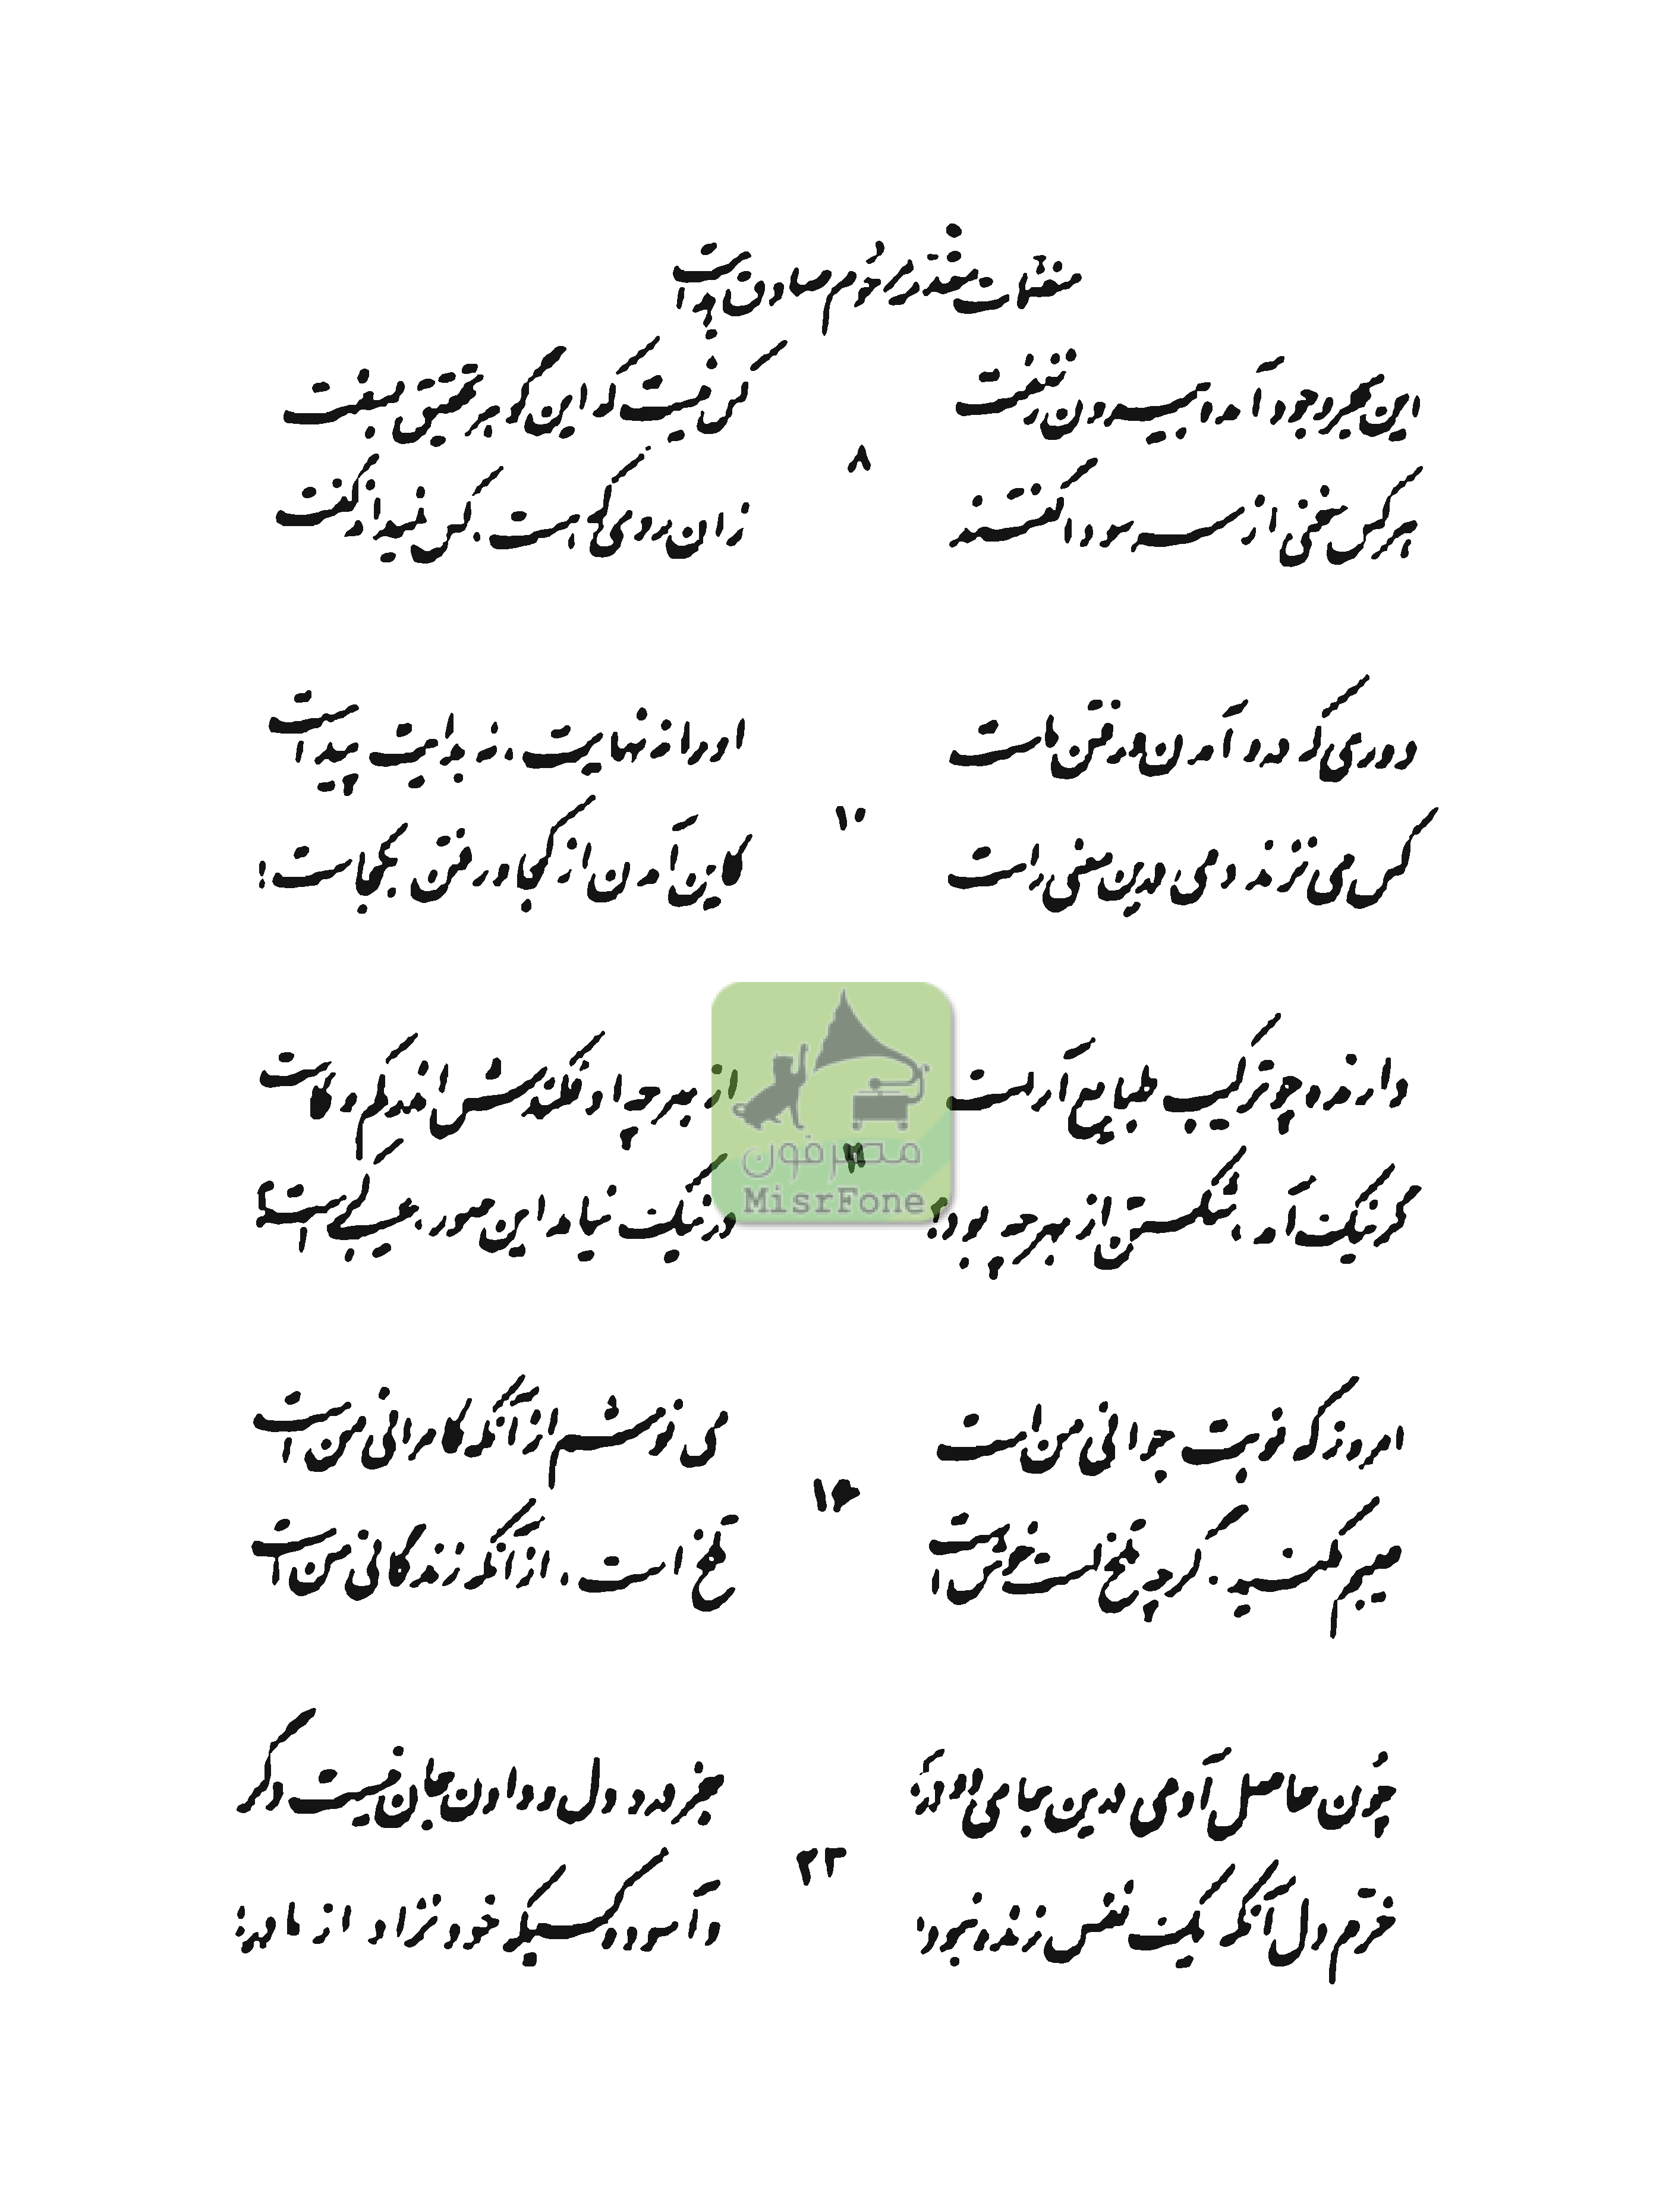 منتخبات متقدمه مرحوم صادق هدایت
این بحر وجود آمده بیرون ز نهفت
کس نیست که این گوهر تحقیق بسفت
۸
هر کس سخنی از سر سودا گفتند
زان روی که هست، کس نمیداند گفت
دوری که در او آمدن و رفتن ماست
او را نه نهایت، نه بدایت پیداست
۱۰
کس می نزند دمی درین معنی راست
کاین آمدن از کجا و رفتن بکجاست!
دارنده چو ترکیب طبایع آراست
از بهر چه او فکندش اندر کم و کاست
مصرفون
MisrFone
گر نیک آمد، شکستن از بهر چه بود؟
ور نیک نیامد این صور، عیب کراست؟
امروز که نوبت جوانی من است
می نوشم از آنکه کامرانی من است
۱۶
عیبم مکنید. گرچه تلخ است خوش است
تلخ است، از آنکه زندگانی من است
چون حاصل آدمی درین جای دو در
جز درد دل و دادن جان نیست دگر
۲۳
خرّم دل آنکه یک نفس زنده نبود
و آسوده کسیکه خود نزاد از مادر